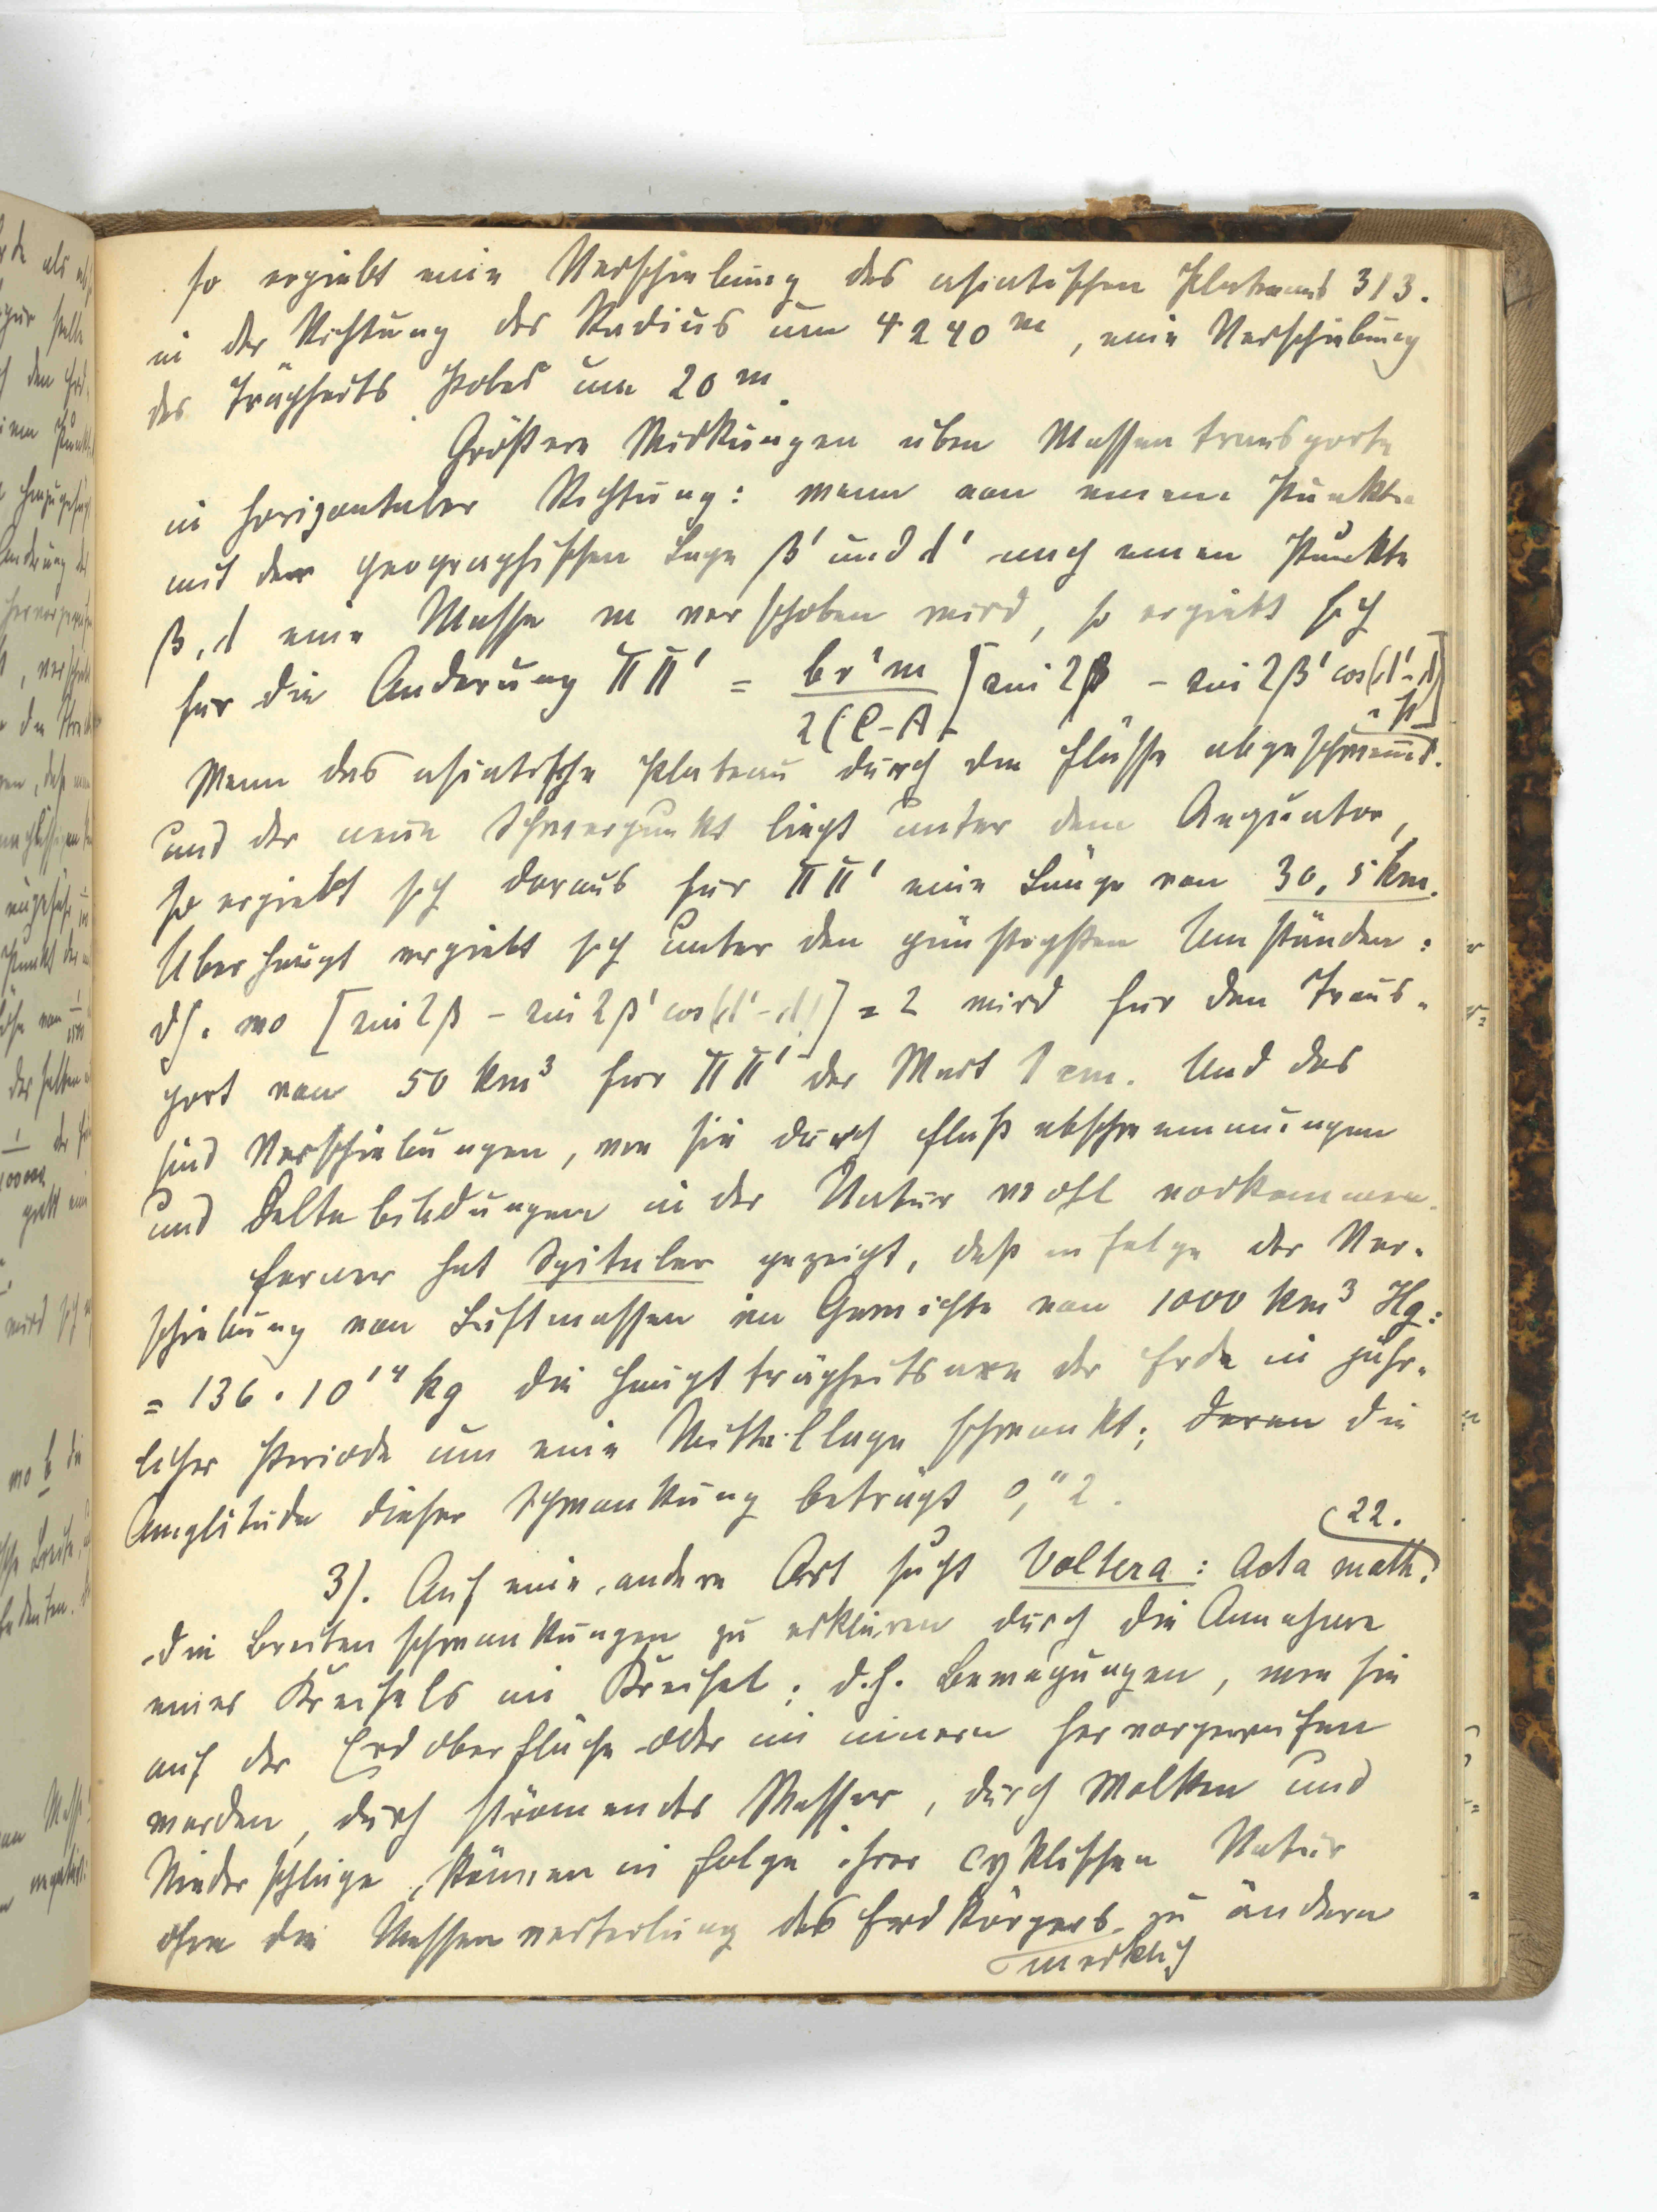 so ergiebt eine Verschiebung des asiatischen Plateaus 313.
in der Richtung des Radius um 4240 m, eine Verschiebung
des Trägheits Poles um 20 m.
Größere Wirkungen üben Massentransporte
in horizontaler Richtung: wenn von einem Punkte
mit der geographischen Lage β' und λ' nach einem Punkte
β, λ eine Masse m verschoben wird, so ergiebt sich
für die Änderung ΠΠ' = br'm / 2(C-A) [sin 2β - sin 2β' cos(λ'-λ)]
Wenn das asiatische Plateau durch die Flüsse abgeschwemmt.
und der neue Schwerpunkt liegt unter dem Aequator,
so ergiebt sich daraus für ΠΠ' eine Länge von 30,5 km.
Überhaupt ergiebt sich unter den günstigsten Umständen:
dh. wo [sin 2β - sin 2β' cos(λ'-λ)] = 2 wird für den Trans-
port von 50 km³ für ΠΠ' der Wert 1 cm. Und das
sind Verschiebungen, wie sie durch Flußabschwemmungen
und Deltabildungen in der Natur wohl vorkommen.
Ferner hat Spitaler gezeigt, daß in folge der Ver-
schiebung von Luftmassen im Gewichte von 1000 km³ Hg:
= 136 · 10¹⁴ kg die Hauptträgheitsaxe der Erde in jähr-
licher Periode um eine Mittellage schwankt; deren die
Amplitude dieser Schwankung beträgt 0,"2.
22.
3). Auf eine andere Art sucht Voltera: Acta math.
die Breitenschwankungen zu erklären durch die Annahme
eines Kreisels im Kreisel: d.h. Bewegungen, wie sie
auf der Erdoberfläche oder im innern hervorgerufen
werden, durch strömendes Wasser, durch Wolken und
Niederschläge, können in folge ihrer cyklischen Natur
ohne die Massenverteilung des Erdkörpers zu ändern
merklich